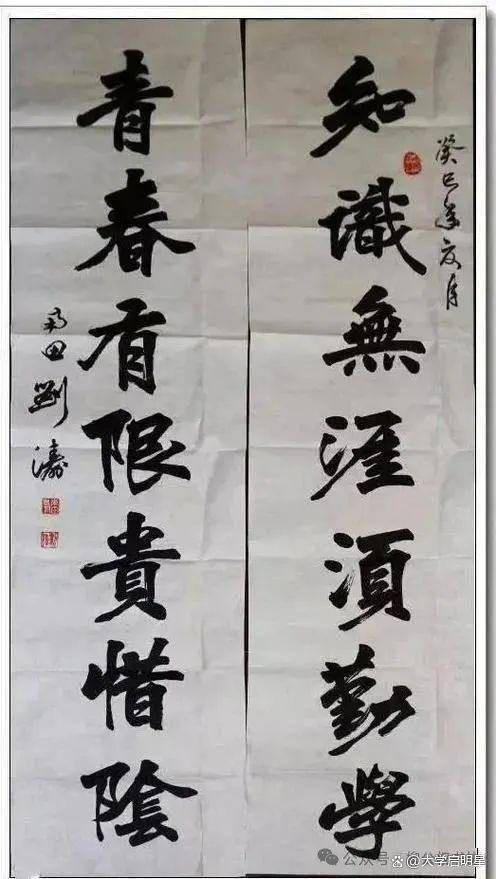 癸巳年夏月
知識無涯湏勤學
青春有限貴惜陰
雨田劉濤
公众号
@大学启明星